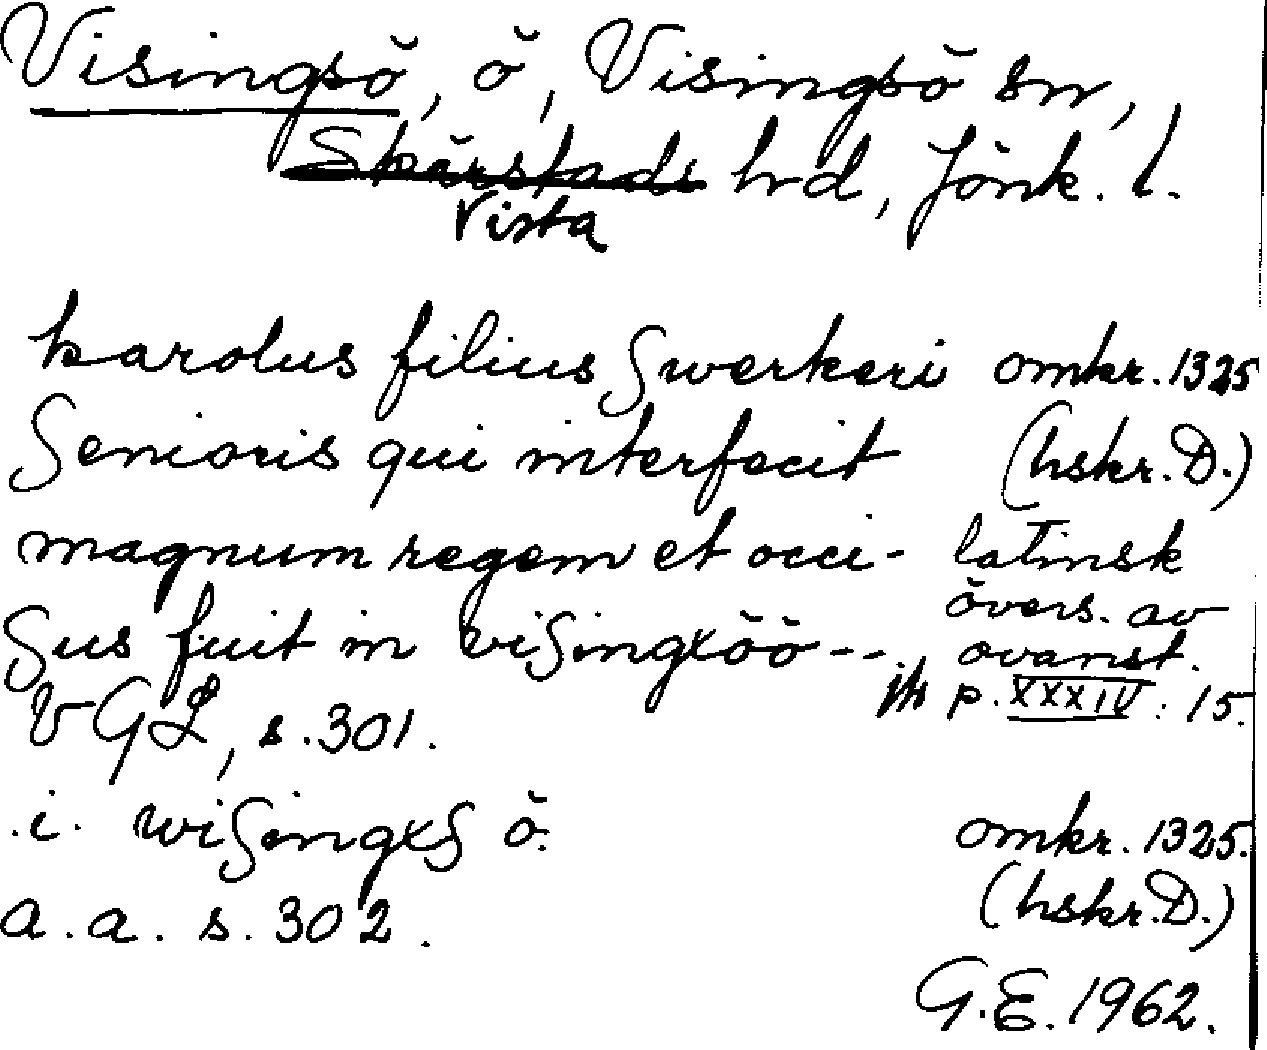 Visingsö, ö, Visingsö sn,
Skärstads hd, Jönk. l.
Vista
karolus filius Swerkeri omkr. 1325
Senioris qui interfecit (hskr. D.)
magnum regem et occi- latinsk
övers. av
sus fuit in visingxöö --. ovanst.
p. XXXIV: 15.
VGL, s. 301.
.i. wisingxs ö. omkr. 1325.
a. a. s. 302. (hskr. D.)
G.E. 1962.